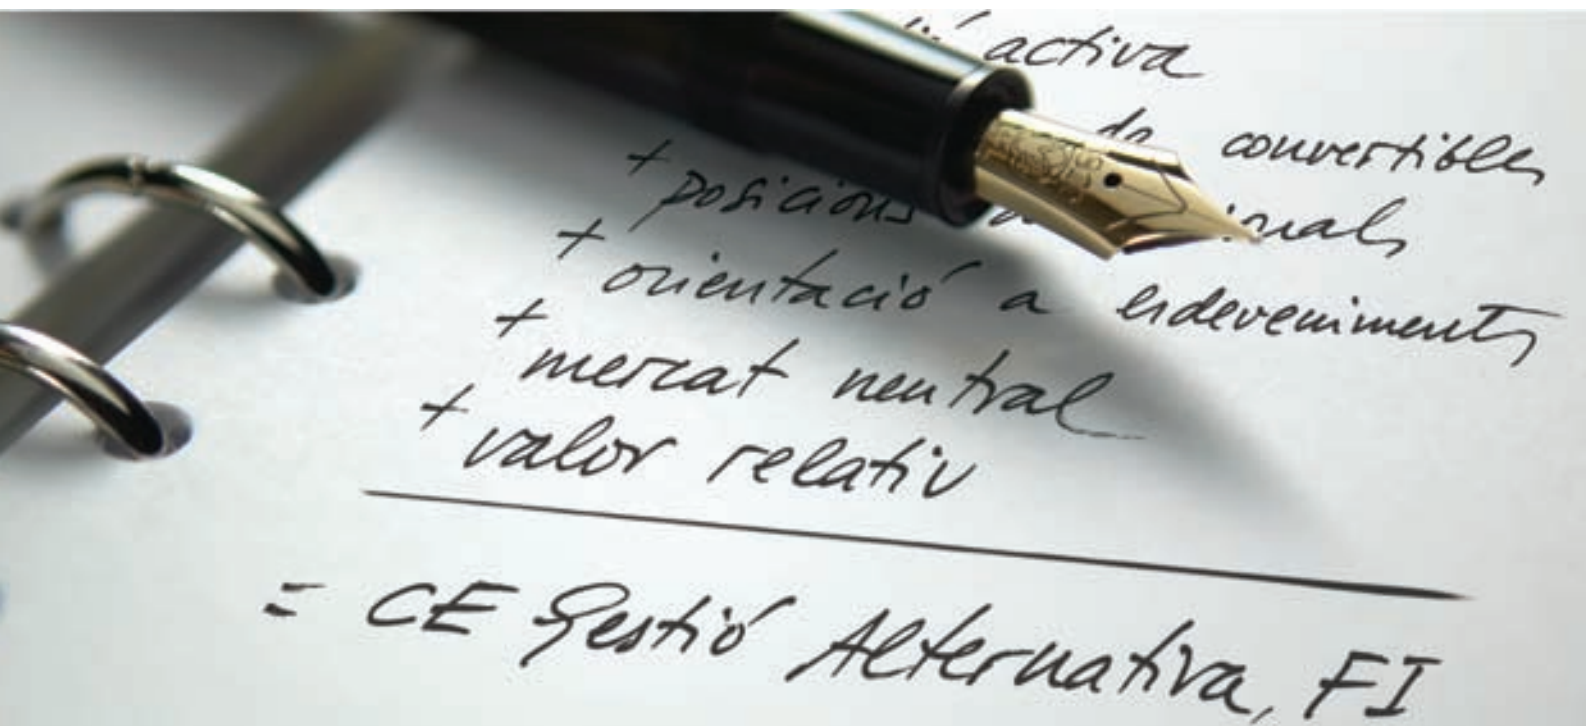 activa
de convertibles
+ posicions
+ orientació a esdeveniments
+ mercat neutral
+ valor relatiu
= CE Gestió Alternativa, FI